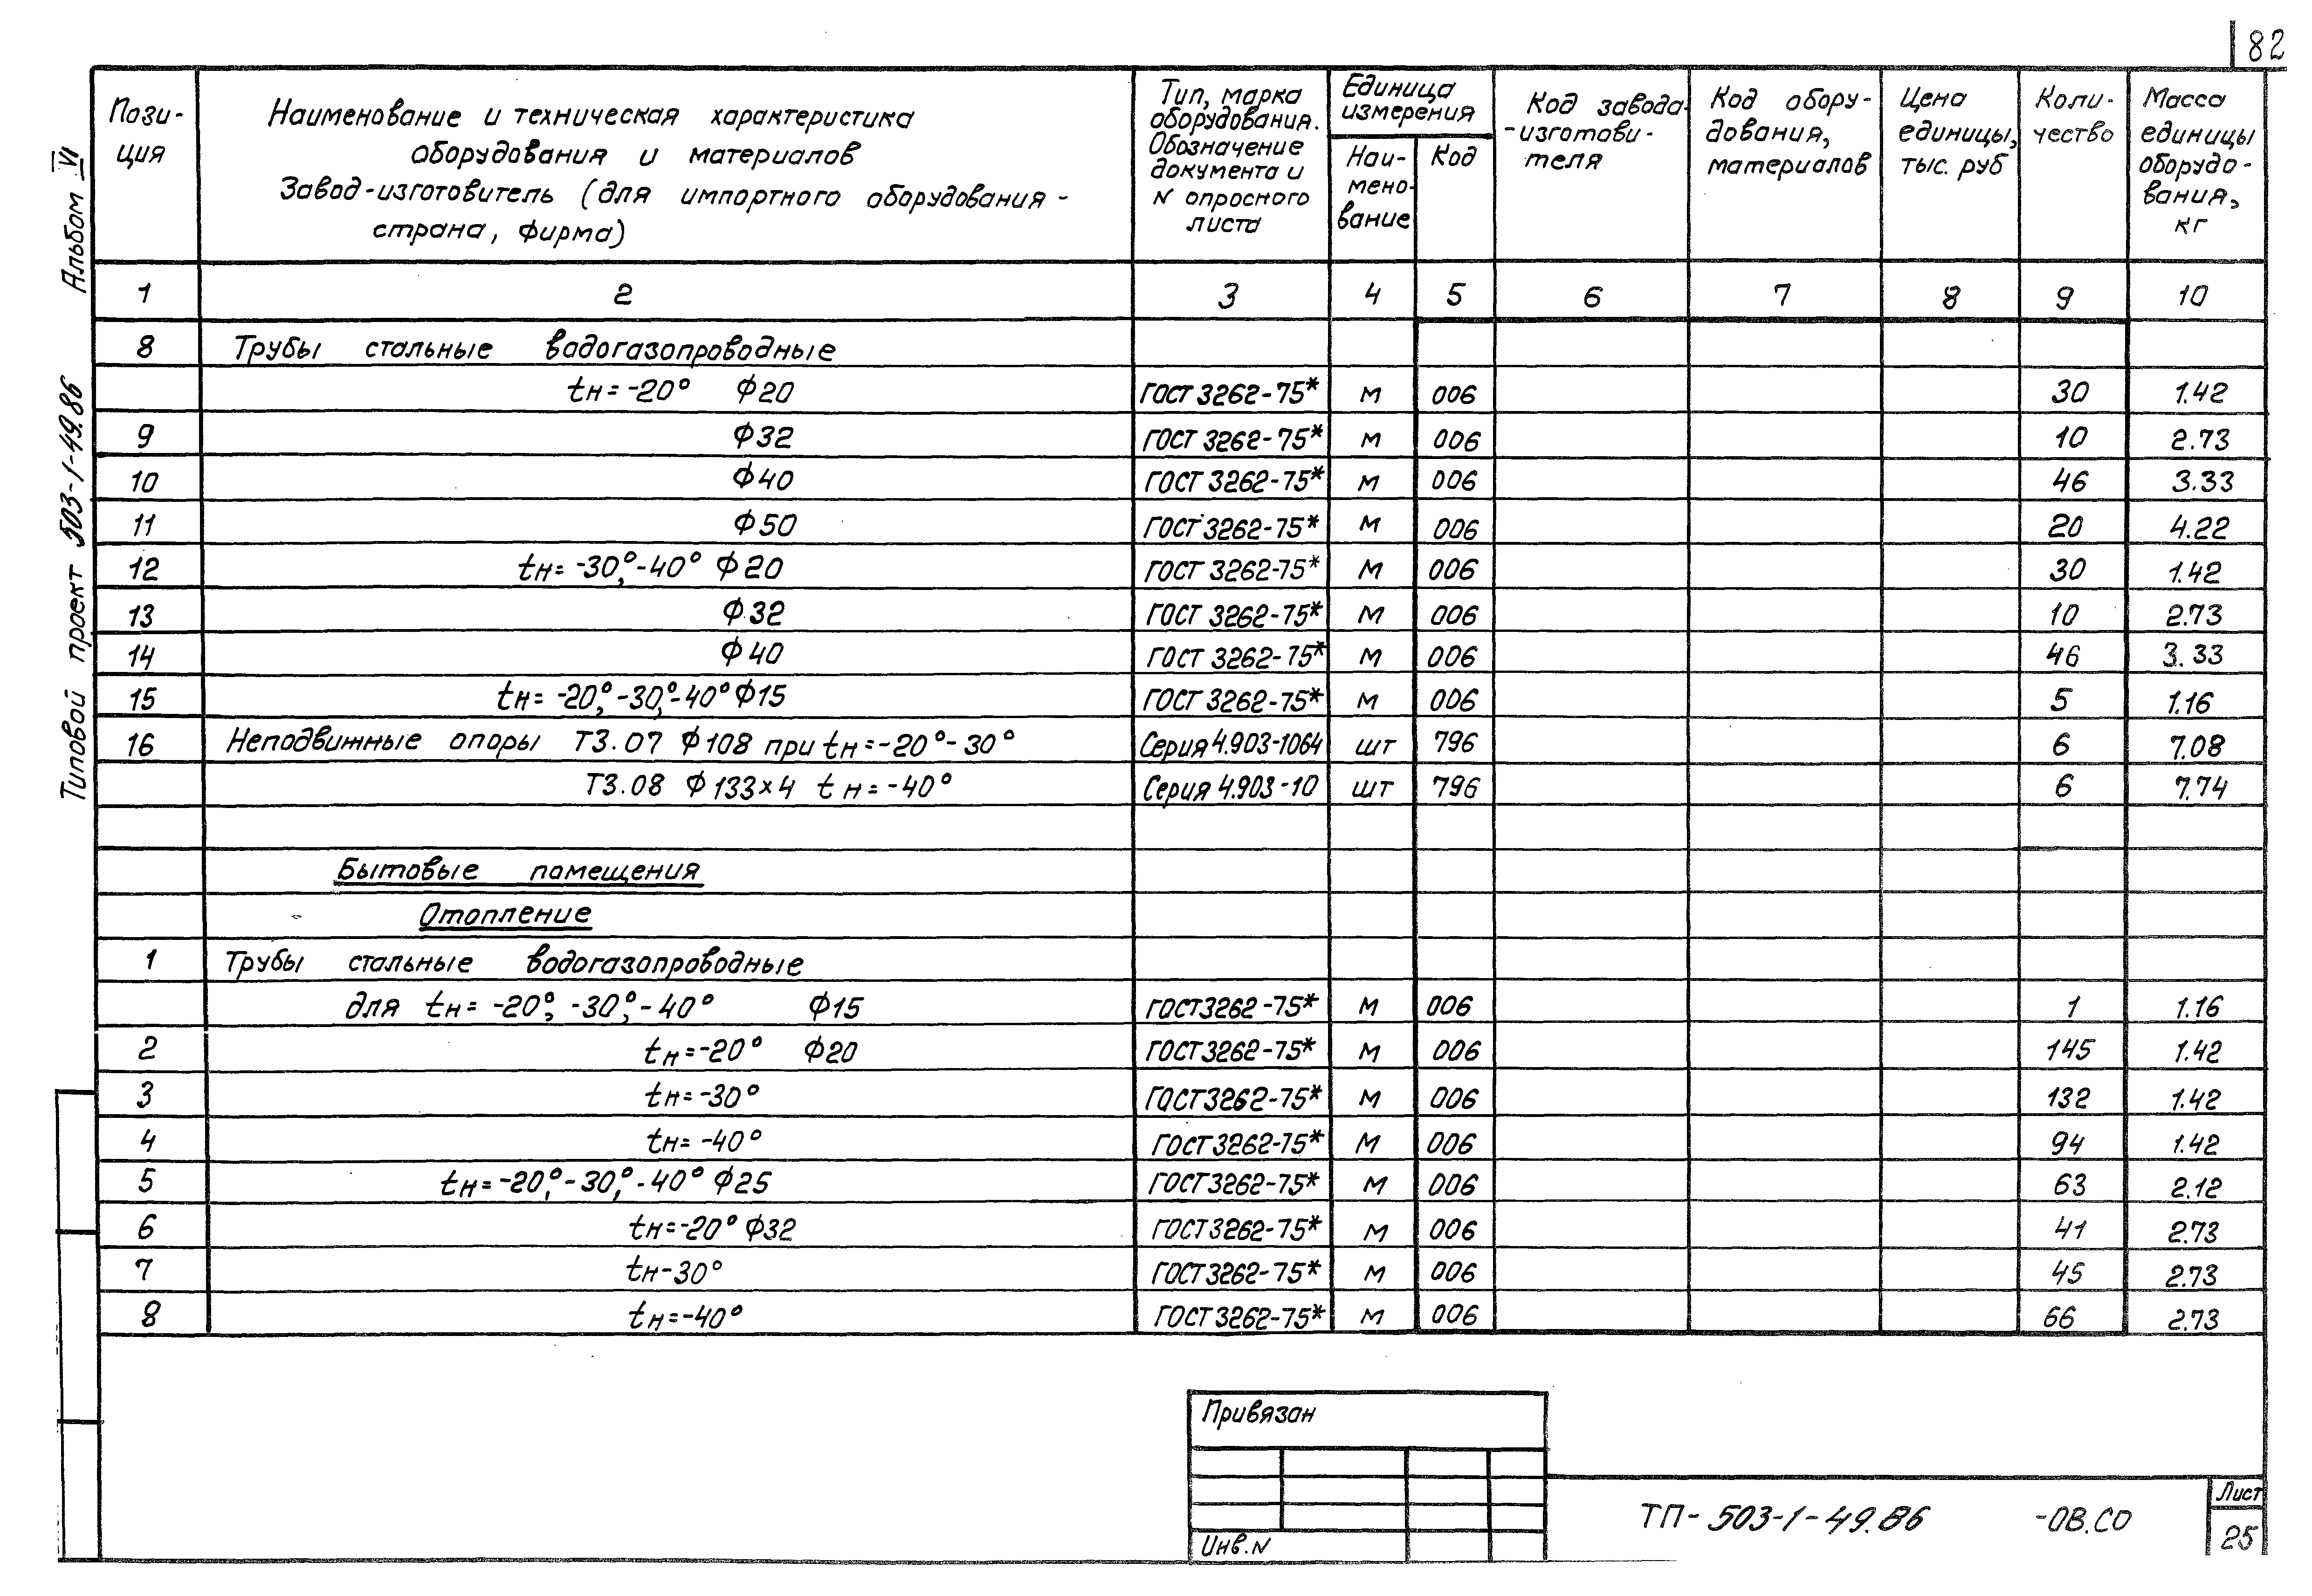 82
Альбом VI
Типовой проект 503-1-49.86
Пози-
ция
Наименование и техническая характеристика
оборудования и материалов
Завод-изготовитель (для импортного оборудования -
страна, фирма)
Тип, марка
оборудования.
Обозначение
документа и
N опросного
листа
Единица
измерения
Наи-
мено-
вание
Код
Код завода-
-изготови-
теля
Код обору-
дования,
материалов
Цена
единицы,
тыс. руб
Коли-
чество
Масса
единицы
оборудо-
вания,
кг
1 2 3 4 5 6 7 8 9 10
8 Трубы стальные водогазопроводные
tн=-20° Ф20 ГОСТ 3262-75* м 006 30 1.42
9 Ф32 ГОСТ 3262-75* м 006 10 2.73
10 Ф40 ГОСТ 3262-75* м 006 46 3.33
11 Ф50 ГОСТ 3262-75* м 006 20 4.22
12 tн=-30°,-40° Ф20 ГОСТ 3262-75* м 006 30 1.42
13 Ф32 ГОСТ 3262-75* м 006 10 2.73
14 Ф40 ГОСТ 3262-75* м 006 46 3.33
15 tн=-20°,-30°,-40° Ф15 ГОСТ 3262-75* м 006 5 1.16
16 Неподвижные опоры Т3.07 Ф108 при tн=-20°-30° Серия 4.903-1064 шт 796 6 7.08
Т3.08 Ф133×4 tн=-40° Серия 4.903-10 шт 796 6 7.74
Бытовые помещения
Отопление
1 Трубы стальные водогазопроводные
для tн=-20°,-30°,-40° Ф15 ГОСТ 3262-75* м 006 1 1.16
2 tн=-20° Ф20 ГОСТ 3262-75* м 006 145 1.42
3 tн=-30° ГОСТ 3262-75* м 006 132 1.42
4 tн=-40° ГОСТ 3262-75* м 006 94 1.42
5 tн=-20°,-30°,-40° Ф25 ГОСТ 3262-75* м 006 63 2.12
6 tн=-20° Ф32 ГОСТ 3262-75* м 006 41 2.73
7 tн-30° ГОСТ 3262-75* м 006 45 2.73
8 tн=-40° ГОСТ 3262-75* м 006 66 2.73
Привязан
Инв.N
ТП-503-1-49.86 -ОВ.СО
Лист
25